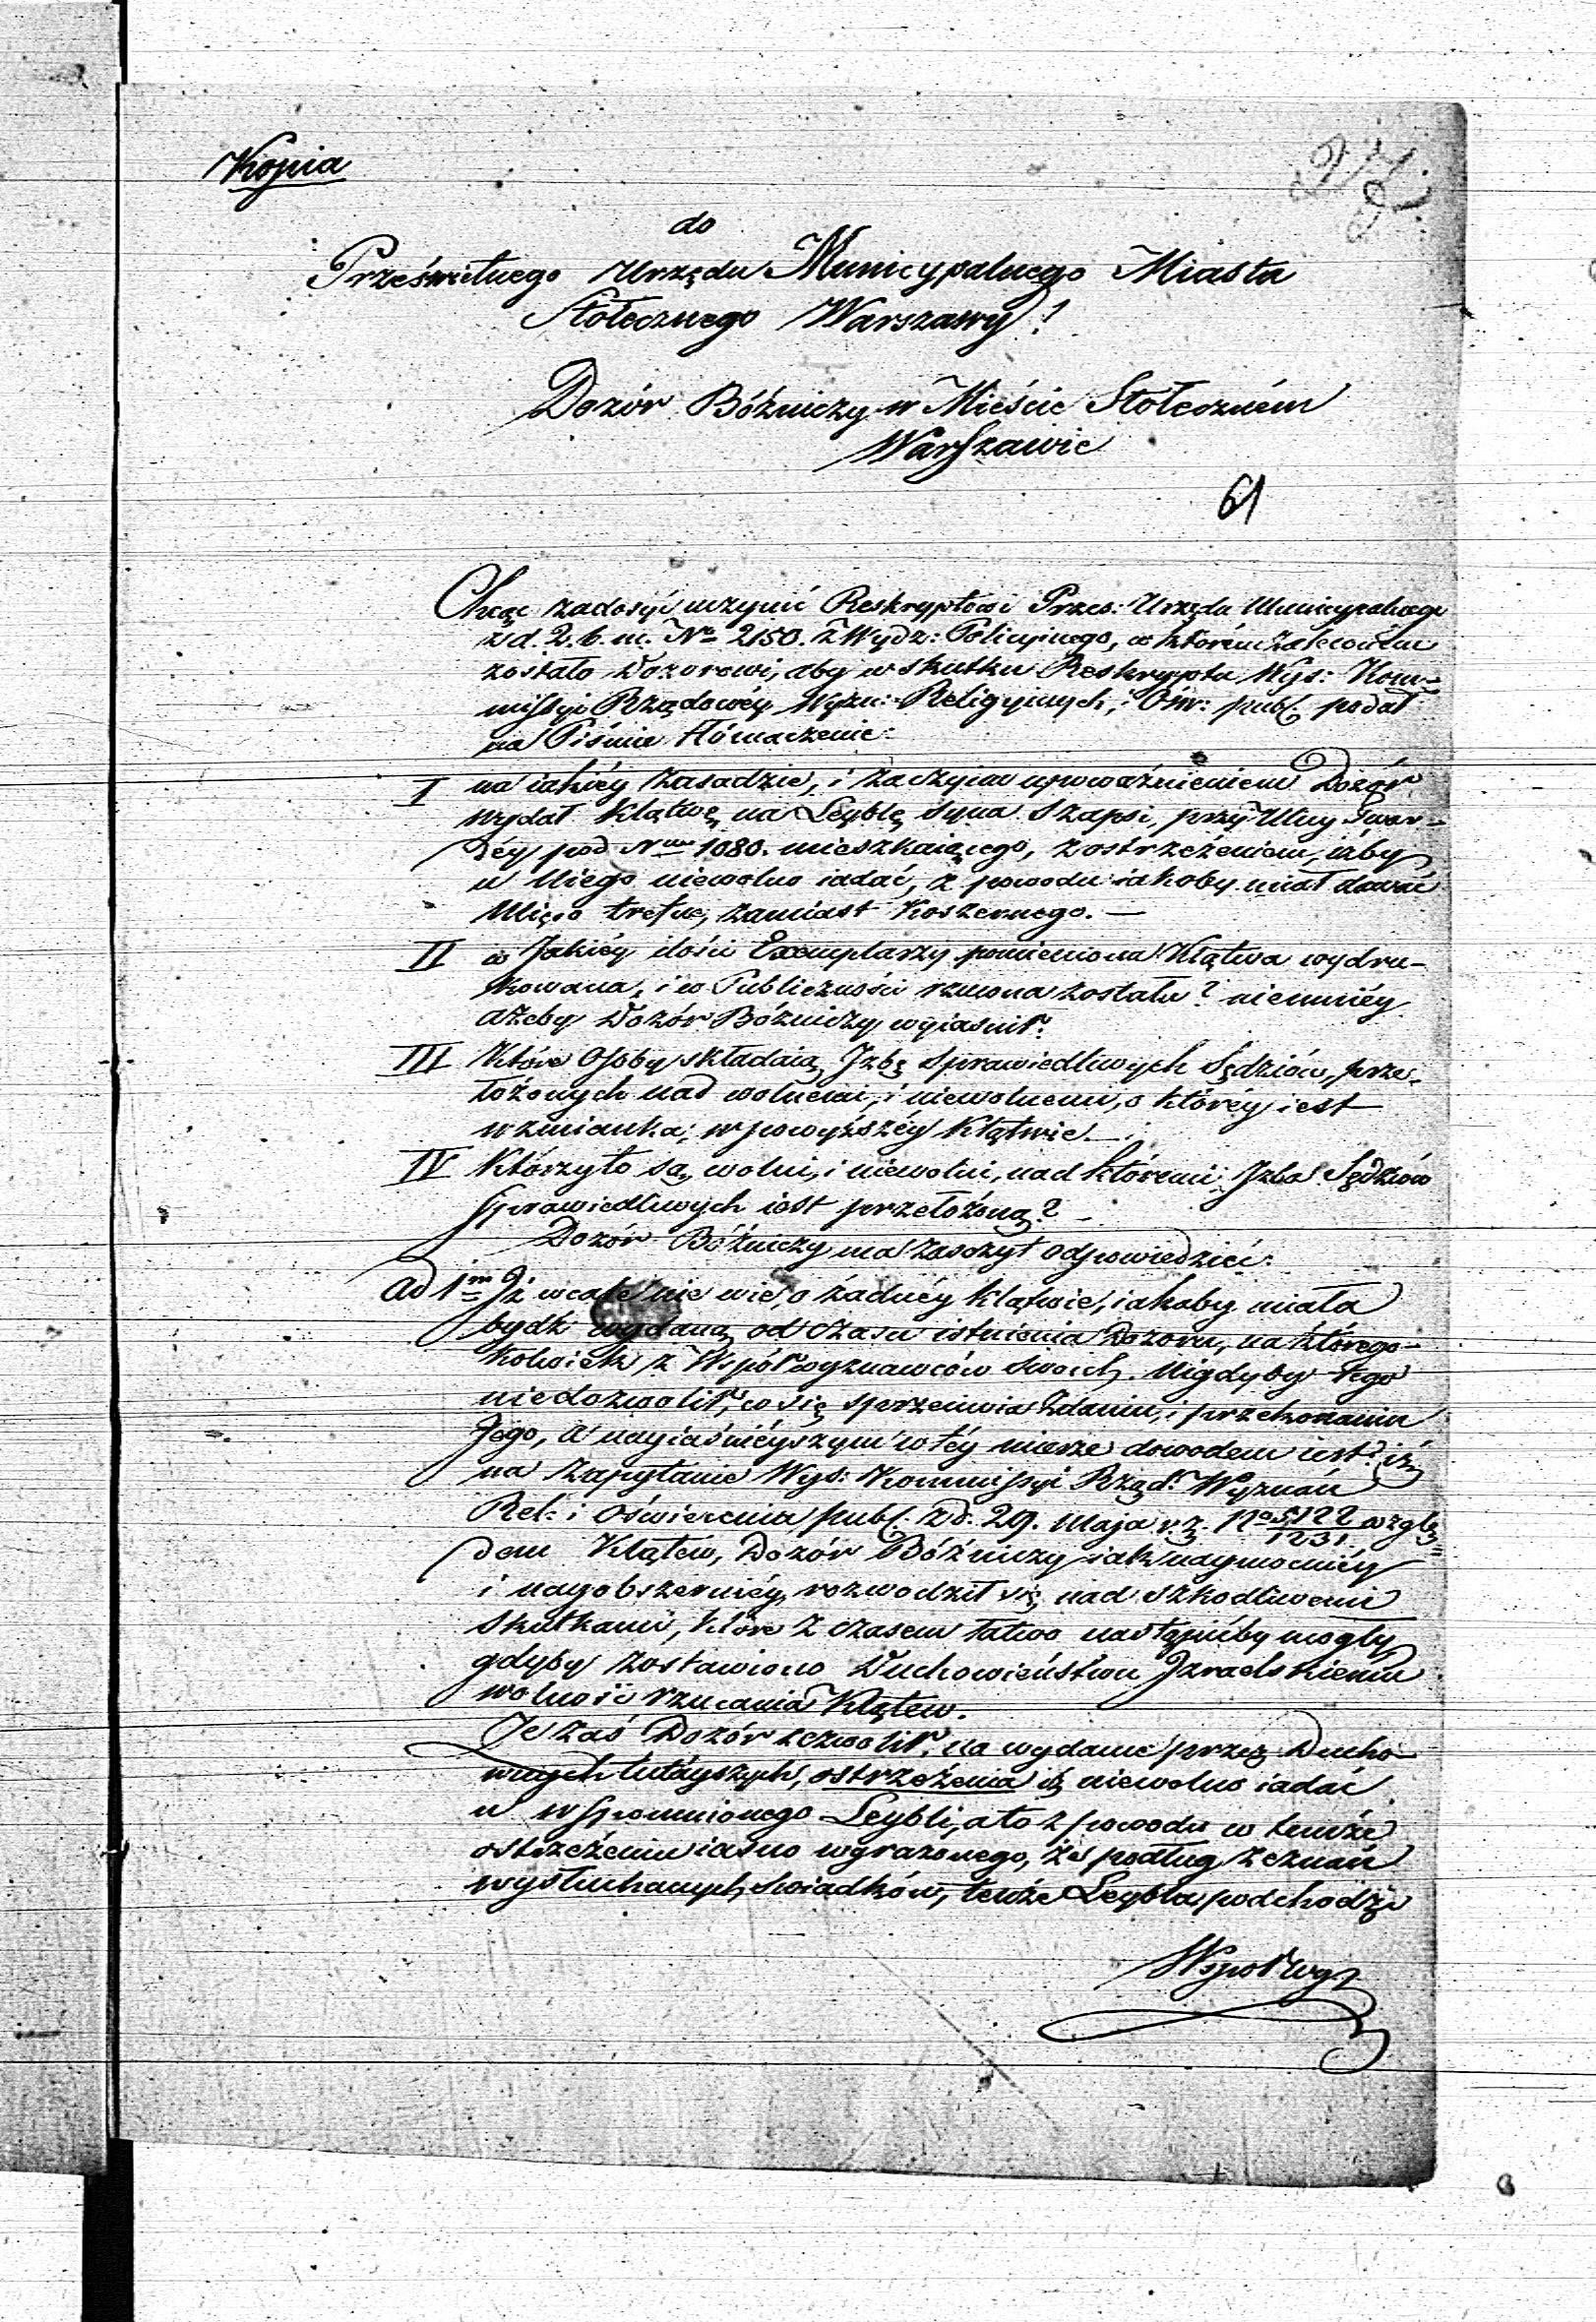 Kopia
do
Prześwietnego Urzędu Municypalnego Miasta
Stołecznego Warszawy!
Dozór Bóżniczy w Mieście Stołeczném
Warszawie
61
Chcąc zadosyć uczynić Reskryptowi Prześ: Urzędu Municypalnego
z d. 2. b. m. No 2150. z Wydz: Policyinego, w którém zaleconem
zostało Dozorowi, aby w skutku Reskryptu Wys: Kom-
missyi Rządowéy Wyzn: Religiynych, i Ośw: publ. podał
na Piśmie tłómaczenie:
I na iakiéy zasadzie, i za czyim upoważnieniem Dozór
wydał Klątwę na Leyblę syna Szapsi, przy Ulicy Twar-
déy pod Nrem 1080. mieszkaiącego, z ostrzeżeniem, iżby
u Niego niewolno iadać, z powodu iakoby miał dawać
Mięso trefne, zamiast Koszernego. —
II w Jakiéy ilości Exemplarzy pomieniona Klątwa wydru-
kowana, i w Publiczności rzucona została? niemniéy
ażeby Dozór Bóżniczy wyiaśnił:
III Które Osoby składaią Jzbę Sprawiedliwych Sędziów, prze-
łożonych nad wolnemi, i niewolnemi, o któréy iest
wzmianka, w powyższéy Klątwie. —
IV Którzy to są wolni, i niewolni, nad któremi Jzba Sędziów
Sprawiedliwych iest przełożoną?
Dozór Bóżniczy ma zaszczyt odpowiedzieć:
Ad 1m Jż wcale nie wie, o żadnéy klątwie, iakoby miała
bydź wydaną od czasu istnienia Dozoru, na którego-
kolwiek z Współwyznawców swoich. Nigdyby tego
niedozwolił, co się sprzeciwia zdaniu, i przekonaniu
Jego, a nayiaśnieyszym w téy mierze dowodem iest? iż
na zapytanie Wys: Kommissyi Rząd: Wyznań
Rel: i Oświecenia publ. z d. 29. Maja r. z. No 5122/1231. wzglę=
dem Klątew, Dozór Bóżniczy iak naymocniéy
i nayobszerniéy rozwodził się nad szkodliwemi
skutkami, które z czasem łatwo nastąpićby mogły
gdyby zostawiono Duchowieństwu Jzraelskiemu
wolność rzucania Klątew.
Że zaś Dozór zezwolił, na wydanie przez Ducho-
wnych tutéyszych, ostrzeżenia iż niewolno iadać
u wspomnionego Leybli, a to z powodu w temże
ostrzeżeniu iasno wyrażonego, że podług zeznań
wysłuchanych świadków, tenże Leybla podchodzi
Współwyz